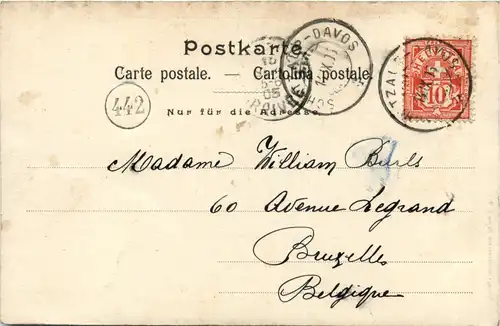 Postkarte.
Carte postale. — Cartolina postale.
442
Nur für die Adresse.
Madame William Burls
60 Avenue Legrand
Bruxelles
Belgique
DAVOS
10